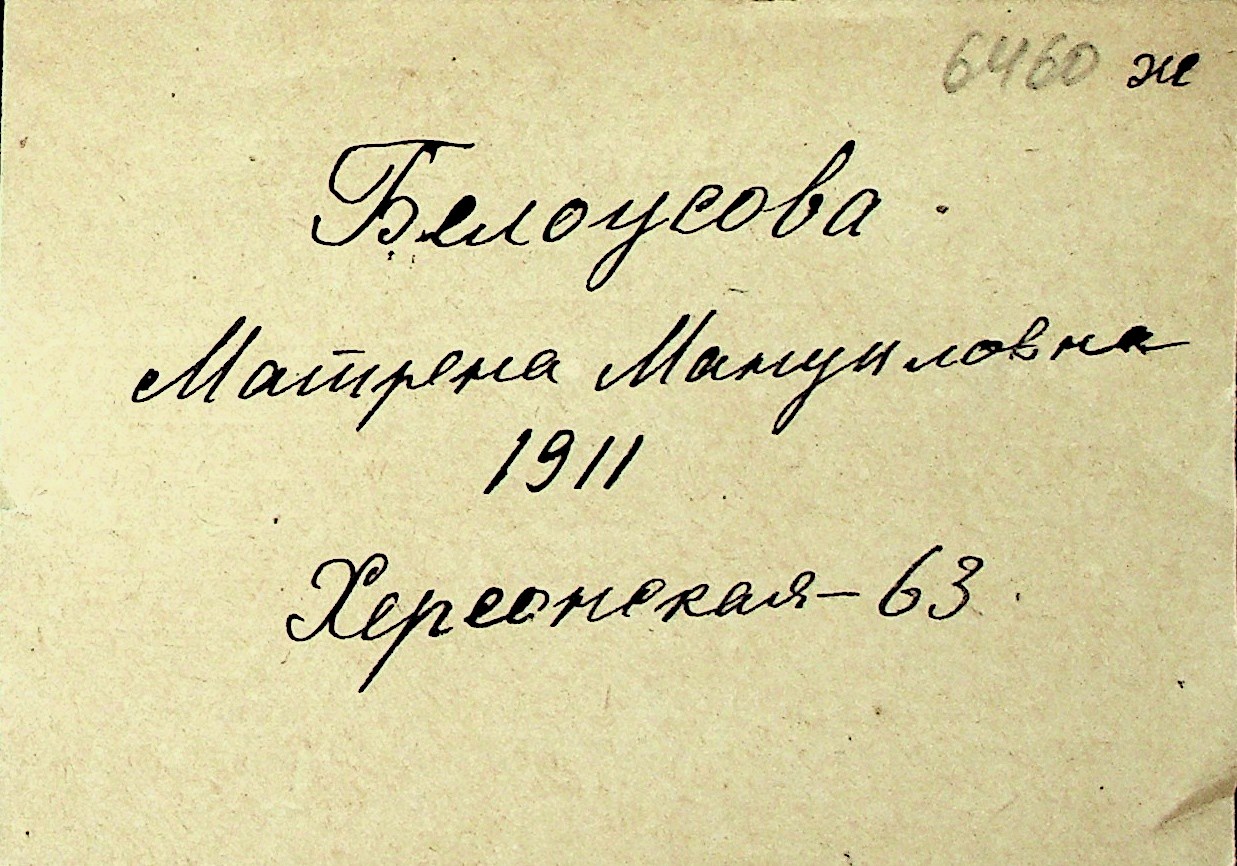 6460 ж
Белоусова
Матрена Мануиловна
1911
Херсонская - 63